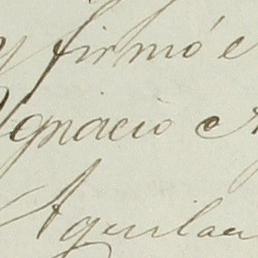 y firmó e
Ygnacio
Aguilar